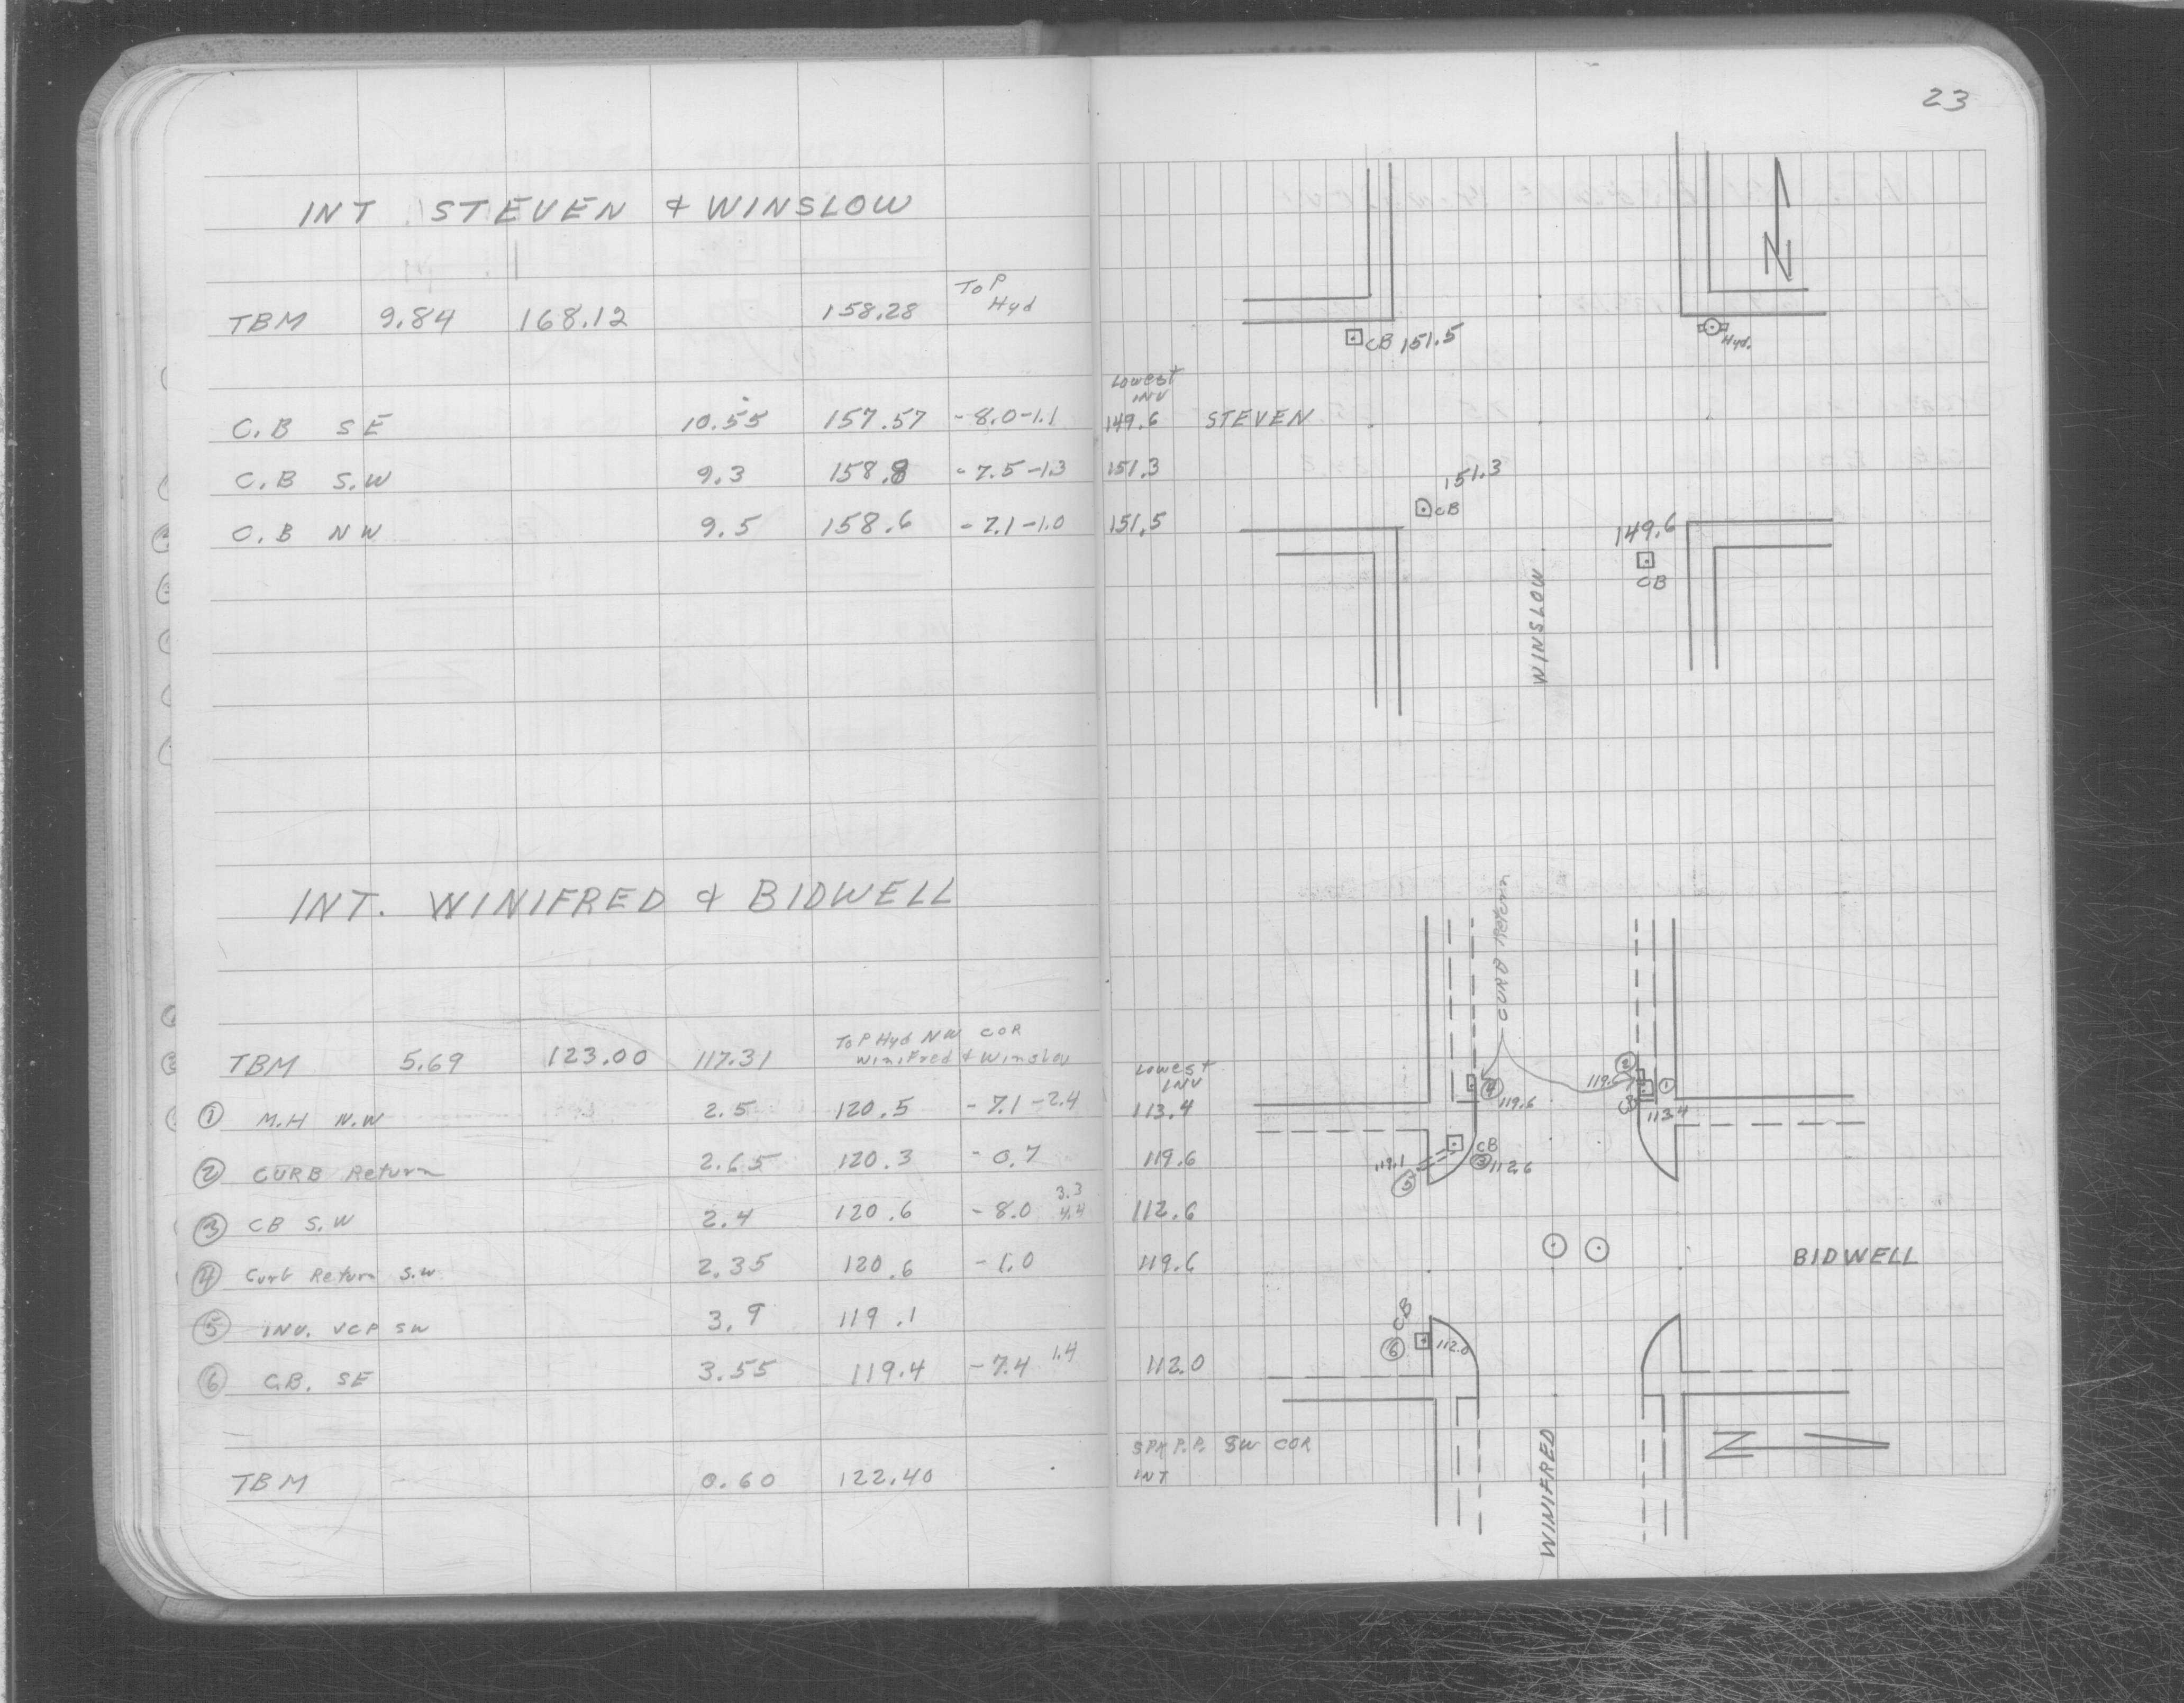 23
INT STEVEN & WINSLOW
TBM 9.84 168.12 158.28 TOP Hyd
C.B SE 10.55 157.57 -8.0-1.1 149.6
C.B S.W 9.3 158.8 -7.5-1.3 151.3
C.B NW 9.5 158.6 -7.1-1.0 151.5
Lowest
INV
N
CB 151.5
Hyd.
STEVEN
151.3
CB
149.6
CB
WINSLOW
INT. WINIFRED & BIDWELL
TBM 5.69 123.00 117.31 TOP Hyd NW COR
Winifred & Winslow
Lowest
INV
① M.H N.W 2.5 120.5 -7.1-2.4 113.4
② CURB Return 2.65 120.3 -0.7 119.6
③ CB S.W 2.4 120.6 -8.0 3.3 4.4 112.6
④ Curb Return S.W 2.35 120.6 -1.0 119.6
⑤ INV. VCP SW 3.9 119.1
⑥ C.B. SE 3.55 119.4 -7.4 1.4 112.0
TBM 0.60 122.40 SPK P.P. SW COR
INT
CURB Return
④ 119.6
② 119.6
①
113.4
CB
③ 112.6
119.1
⑤
BIDWELL
CB
⑥ 112.0
WINIFRED
N